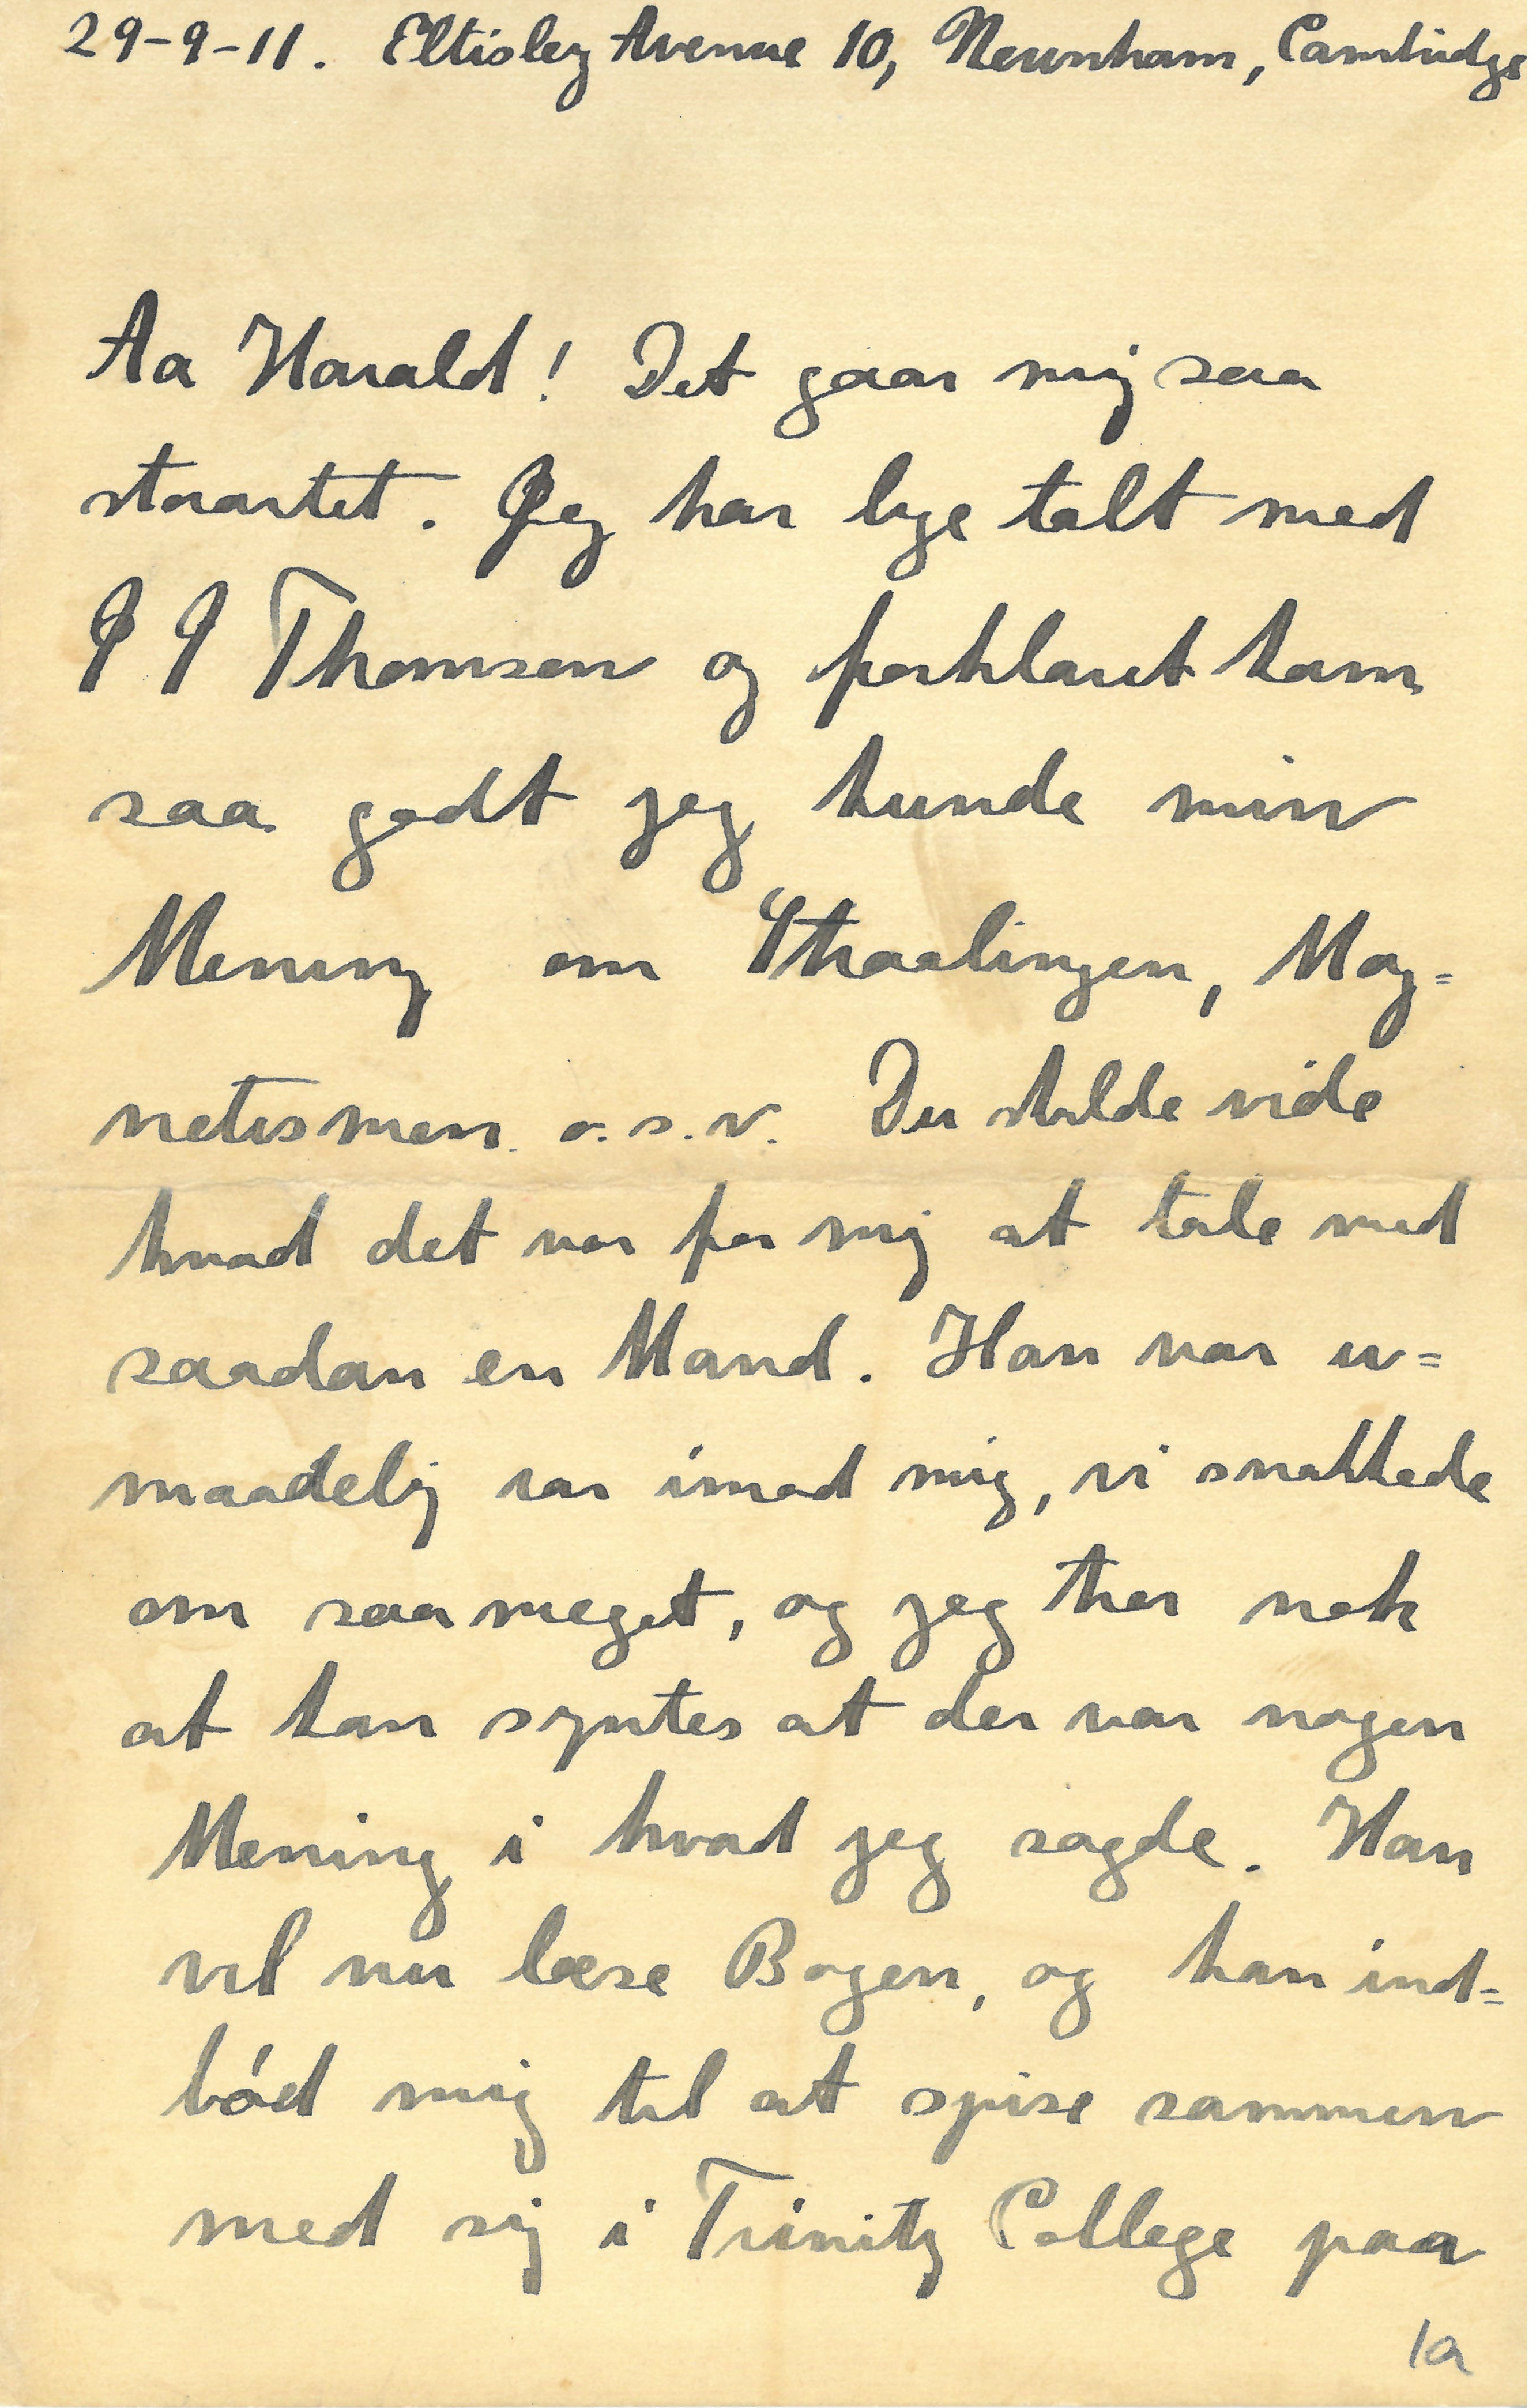 29-9-11. Eltisley Avenue 10, Newnham, Cambridge
Aa Harald! Det gaar mig saa
storartet. Jeg har lige talt med
J J Thomson og forklaret ham
saa godt jeg kunde min
Mening om Straalingen, Mag=
netismen o.s.v. Du skulde vide
hvad det var for mig at tale med
saadan en Mand. Han var u=
maadelig rar imod mig, vi snakkede
om saa meget, og jeg tror nok
at han syntes at der var nogen
Mening i hvad jeg sagde. Han
vil nu læse Bogen, og han ind=
bød mig til at spise sammen
med sig i Trinity College paa
1a